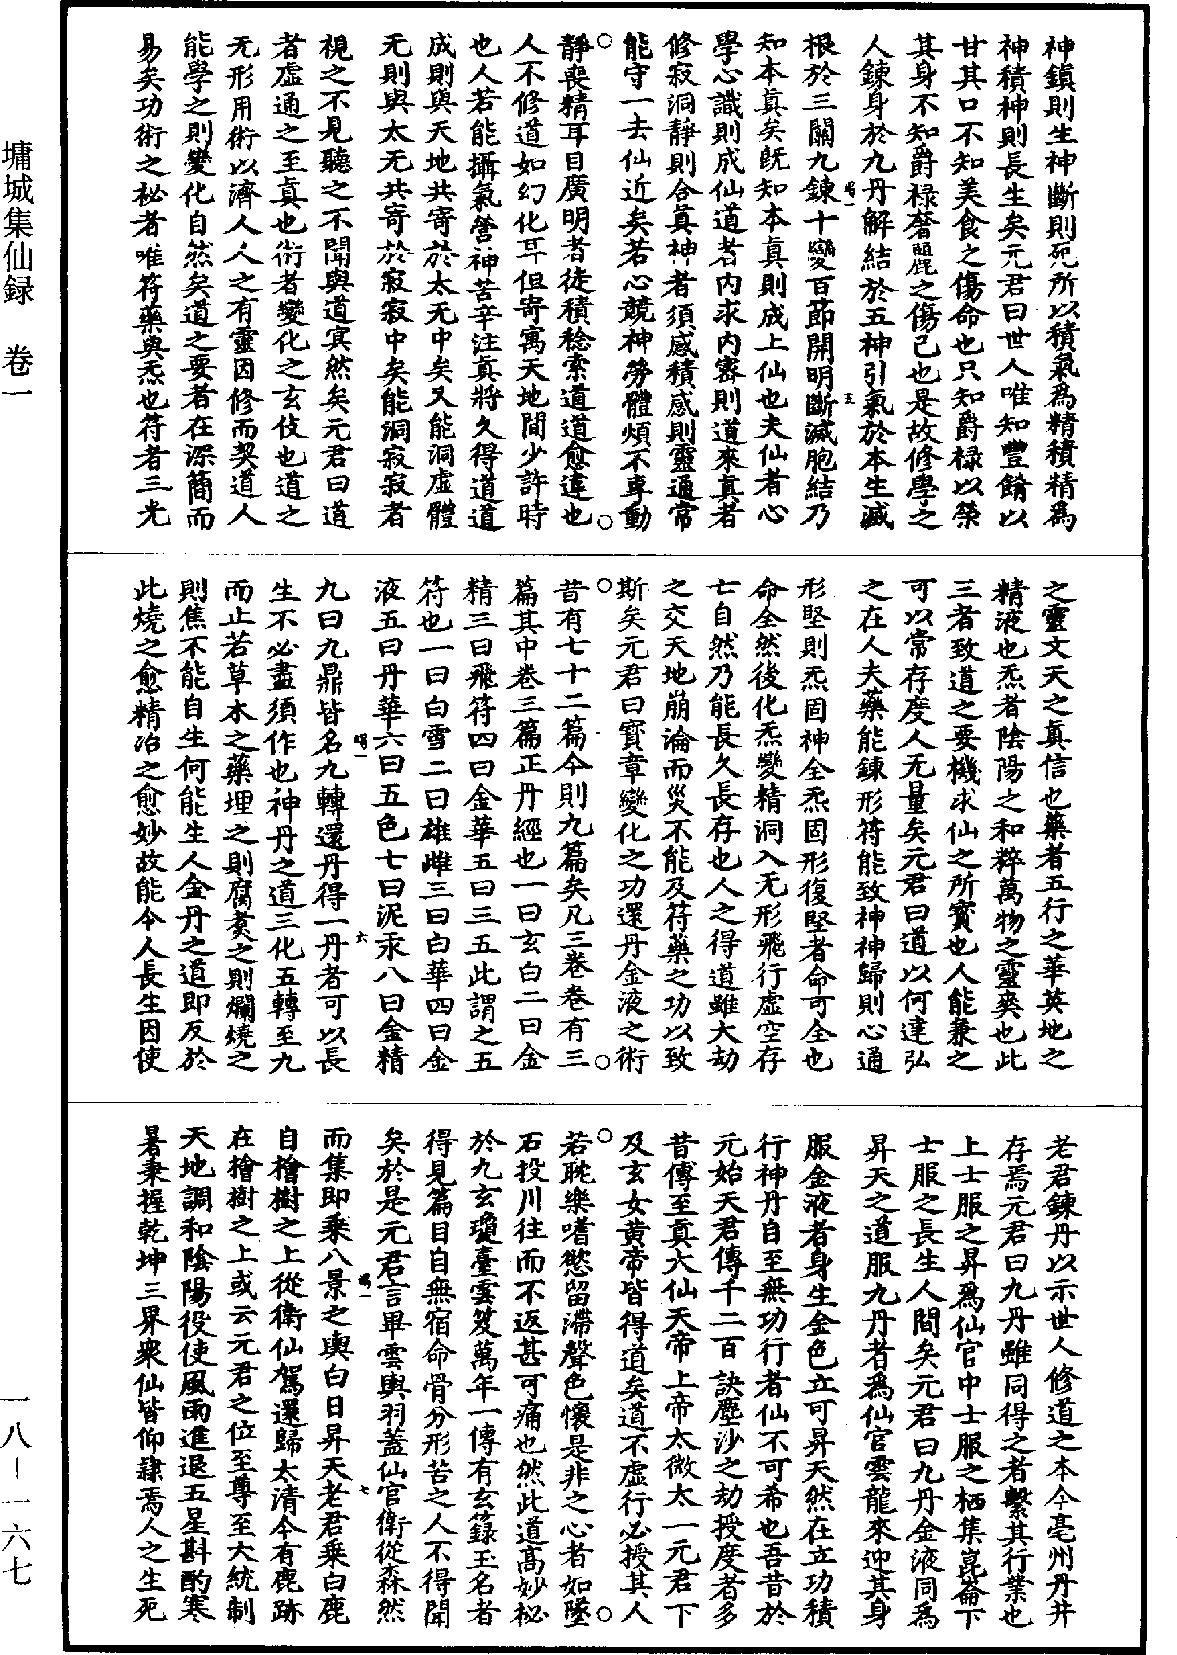 墉城集仙録　卷一
神鎮則生神斷則死所以積氣爲精積精爲
神積神則長生矣元君曰世人唯知豐餚以
甘其口不知美食之傷命也只知爵禄以榮
其身不知爵禄奢麗之傷己也是故修學之
人鍊身於九丹解結於五神引氣於本生滅
根於三關九鍊十變百節開明斷滅胞結乃
知本真矣既知本真則成上仙也夫仙者心
學心識則成仙道者内求内密則道來真者
修寂洞靜則合真神者須感積感則靈通常
能守一去仙近矣若心競神勞體煩不專動
靜喪精耳目廣明者徒積稔索道道愈違也
人不修道如幻化耳但寄寓天地間少許時
也人若能攝氣營神苦辛注真將久得道道
成則與天地共寄於太无中矣又能洞虚體
无則與太无共寄於寂寂中矣能洞寂寂者
視之不見聽之不聞與道冥然矣元君曰道
者虚通之至真也術者變化之玄伎也道之
无形用術以濟人人之有靈因修而契道人
能學之則變化自然矣道之要者在深簡而
易矣功術之秘者唯符藥與炁也符者三光
之靈文天之真信也藥者五行之華英地之
精液也炁者陰陽之和粹萬物之靈爽也此
三者致道之要機求仙之所寳也人能兼之
可以常存度人无量矣元君曰道以何達弘
之在人夫藥能鍊形符能致神神歸則心通
形堅則炁固神全炁固形復堅者命可全也
命全然後化炁變精洞入无形飛行虚空存
亡自然乃能長久長存也人之得道雖大劫
之交天地崩淪而災不能及符藥之功以致
斯矣元君曰寳章變化之功還丹金液之術
昔有七十二篇今則九篇矣凡三卷卷有三
篇其中卷三篇正丹經也一曰玄白二曰金
精三曰飛符四曰金華五曰三五此謂之五
符也一曰白雪二曰雄雌三曰白華四曰金
液五曰丹華六曰五色七曰泥汞八曰金精
九曰九鼎皆名九轉還丹得一丹者可以長
生不必盡須作也神丹之道三化五轉至九
而止若草木之藥埋之則腐煑之則爛燒之
則焦不能自生何能生人金丹之道即反於
此燒之愈精冶之愈妙故能令人長生因使
老君鍊丹以示世人修道之本今亳州丹井
存焉元君曰九丹雖同得之者繫其行業也
上士服之昇爲仙官中士服之栖集崑崙下
士服之長生人間矣元君曰九丹金液同爲
昇天之道服九丹者爲仙官雲龍來迎其身
服金液者身生金色立可昇天然在立功積
行神丹自至無功行者仙不可希也吾昔於
元始天君傳千二百訣塵沙之劫授度者多
昔傳至真大仙天帝上帝太微太一元君下
及玄女黄帝皆得道矣道不虚行必授其人
若耽樂嗜慾留滯聲色懷是非之心者如墜
石投川往而不返甚可痛也然此道高妙祕
於九玄瓊臺雲笈萬年一傳有玄籙玉名者
得見篇目自無宿命骨分形苦之人不得聞
矣於是元君言畢雲輿羽蓋仙官衛從森然
而集即乘八景之輿白日昇天老君乘白鹿
自檜樹之上從衛仙駕還歸太清今有鹿跡
在檜樹之上或云元君之位至尊至大統制
天地調和陰陽役使風雨進退五星斟酌寒
暑秉握乾坤三界衆仙皆仰隸焉人之生死
一八－一六七